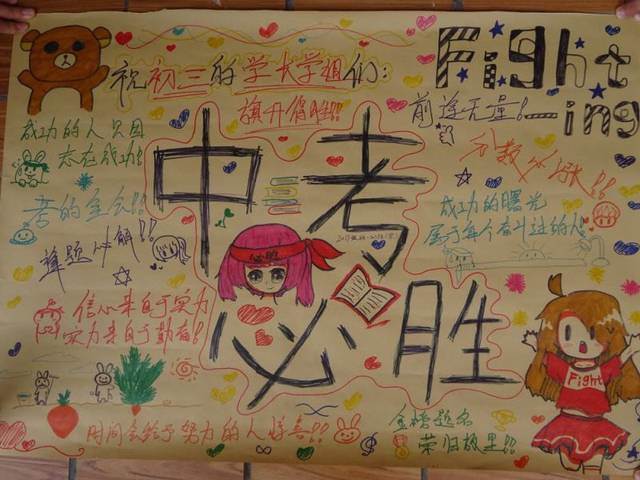 祝初三的学长学姐们:
Fight
ing
旗开得胜!!
前途无量!
分数火涨!!
成功的人只因
态在成功!
中考
必胜
考的全会!!
难题化解!!
成功的曙光
属于每个奋斗过的人
信心来自于实力
实力来自于勤奋!
必胜
Fight
金榜题名
荣归故里!!
时间会给予努力的人惊喜!!